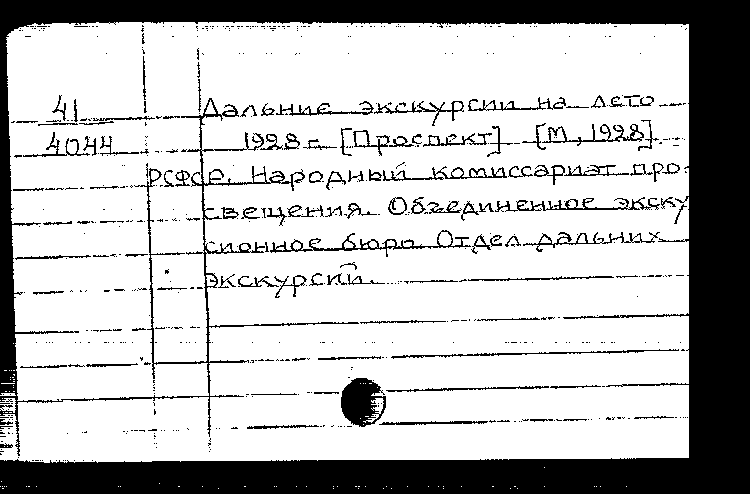 41
4044
Дальние экскурсии на лето
1928 г. [Проспект] [М, 1928].
РСФСР. Народный комиссариат про-
свещения. Объединенное экску
сионное бюро. Отдел дальних
экскурсий.